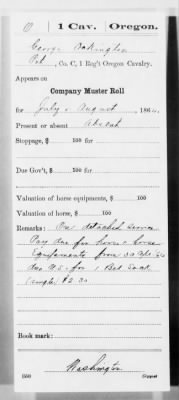 O | 1 Cav. | Oregon.
George
Pvt., Co. C, 1 Reg't Oregon Cavalry.
Appears on
Company Muster Roll
for July & August, 186
Present or absent Absent
Stoppage, $ 100 for
Due Gov't, $ 100 for
Valuation of horse equipments, $ 100
Valuation of horse, $ 100
Remarks: On detached service
Pay due for horse & horse
Equipments from 30 Apr
due U.S. for 1 Bed Sack
(single) $2.30
Book mark:
Washington
(358)
Copyist.